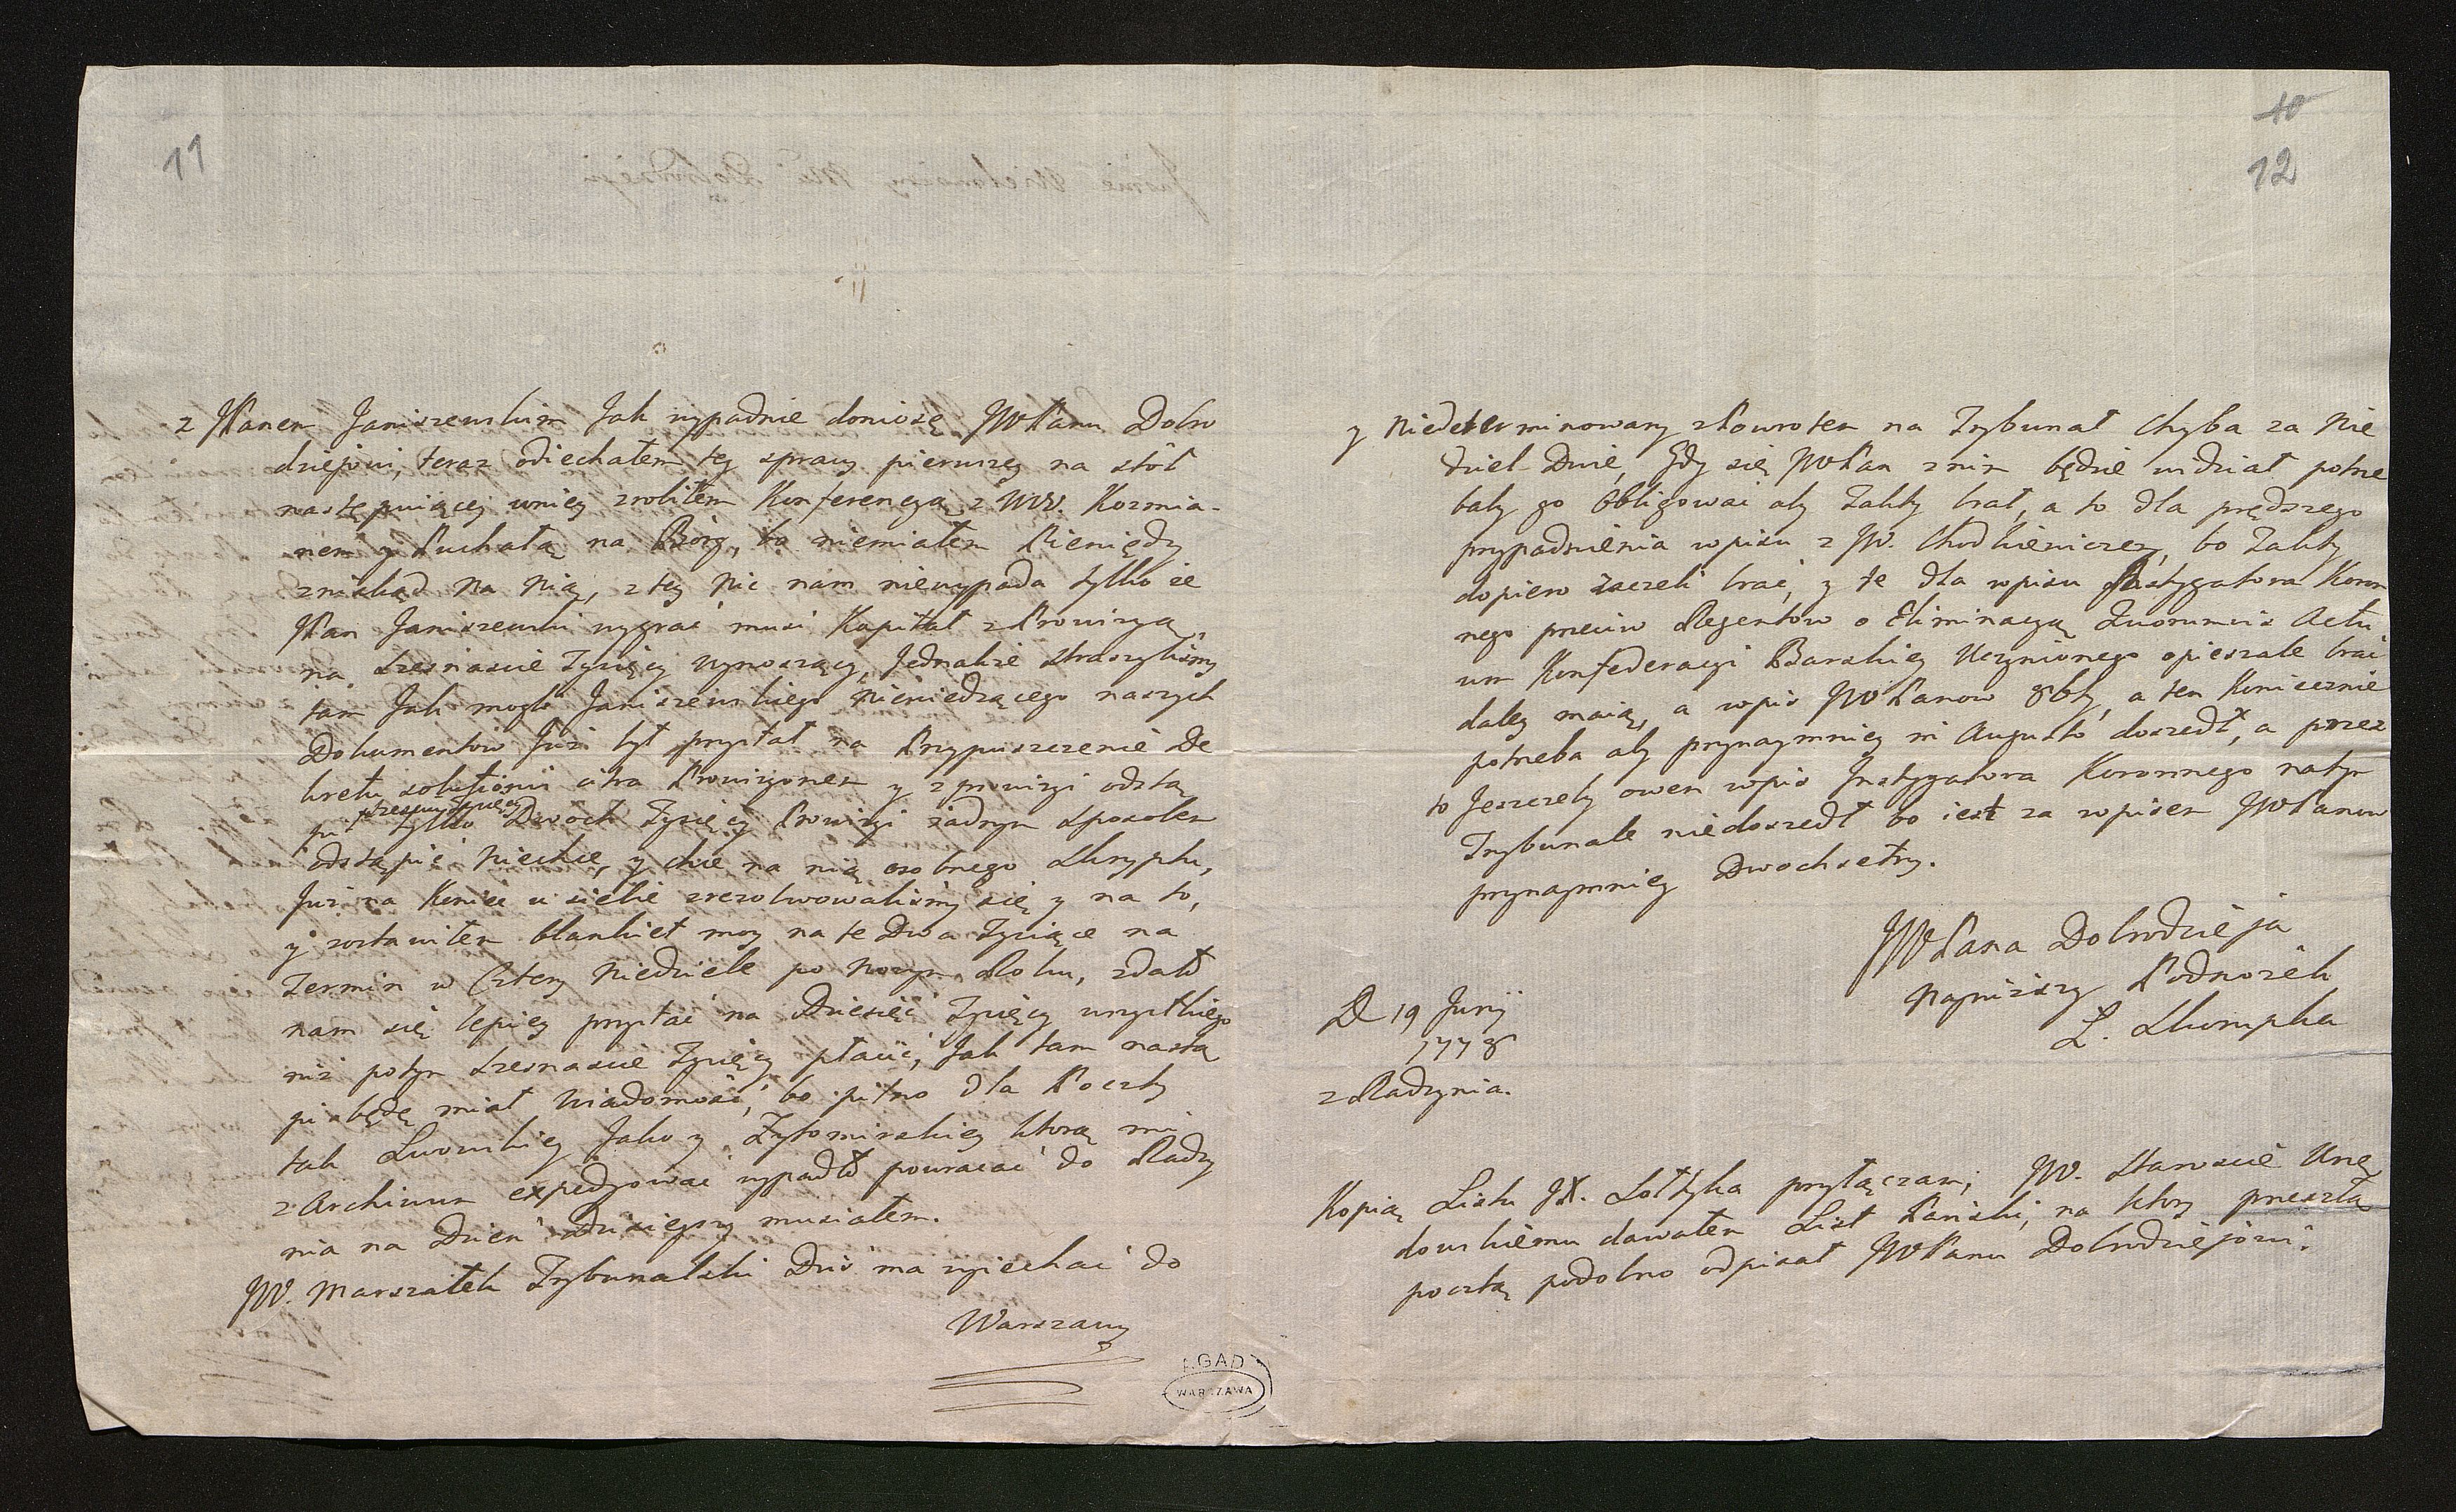 11
z JPanem Janiszewskim Jak wypadnie doniosę JWPanu Dobro
dziejowi, teraz odiechałem tey sprawy pierwszey na stół
następuiącey wniey zrobiłem Konferencyą z WW. Kozmia-
nem y Puchałą na Bórg, bo niemiałem Pieniędzy
znikąd na nią, z tey nic nam niewypada tylko że
JPan Janiszewski wygrać musi Kapitał z Prowizyą
na szesnascie Tysięcy wynoszący, Jednakże straszylismy
tam Jak mogli Janiszewskiego niewiedzącego naszych
Dokumentów Juź był przystał na Przypuszczenie De
kretu solutionis citra Prowizyonem y z prowizyi odstą
pił szesciu Tysięcy tylko Dwóch Tysięcy Prowizyi żadnym sposobem
odstąpić niechce, y chce na nią osobnego Skryptu,
Juź na koniec u siebie zrezolwowalismy się y na to,
y zostawiłem blankiet moy na te Dwa Tysiące na
Termin w Cztery Niedziele po Nowym Roku, zdało
nam się lepiey przystać na Dziesięć Tysięcy wszystkiego
niż potym szesnascie Tysięcy płacić, Jak tam nastą
pi będę miał wiadomość, bo pilno dla Poczty
tak Lwowskiey Jako y Żytomirskiey ktorą mi
z Archiwum expedyowac wypadło powracać do Radzy
nia na Dzień dzisieyszy musiałem.
JW. Marszałek Trybunalski Dziś ma wyiechać do
Warszawy
AGAD
WARSZAWA
10
12
y niedeterminowany z Powrotem na Trybunał chyba za Nie
dziel Dwie, Gdy się JWPan z nim będzie widział potrze
baby go obligować aby Takty brał, a to dla prędszego
przypadnienia wpisu z JW. Chodkiewiczem, bo Takty
dopiero zaczeli brać, y te dla wpisu Instygatora Koron
nego przeciw Regentów o Eliminacyą Quorumvis Actu
um Konfederacyi Barskiey Uczynionego opieszale brać
daley maią, a wpis JWPanow 8bty, a ten koniecznie
potrzeba aby przynaymniey in Augusto doszedł, a przez
to Jeszczeby owen wpis Instygatora Koronnego na tym
Trybunale niedoszedł bo iest za wpisem JWPanow
przynaymniey Dwochsetny.
JWPana Dobrodzieja
Nayniższy Podnożek
L. Skorupka
D 19 Junij
1778
z Radzynia.
Kopią Listu JX. Sołtyka przyłączam; JW. Staroscie
dowskiemu dawałem List Pański, na ktory przeszłą
pocztą podobno odpisał JWPanu Dobrodziejowi.